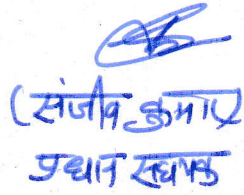 (संजीव कुमार)
प्रधान सहायक